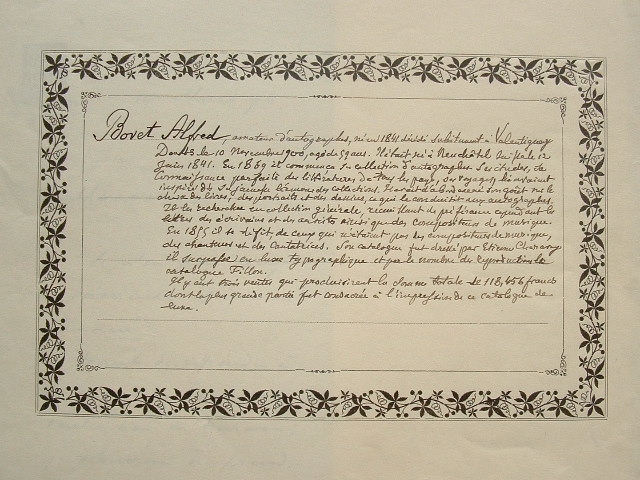 Bovet Alfred, amateur d'autographes, né en 1841 décédé subitement à Valentigney
Doubs le 10 Novembre 1900, agé de 59 ans. Il était né à Neuchâtel Suisse le 12
Juin 1841. En 1869 il commença sa collection d'autographes. Ses études, sa
connaissance parfaite des littératures de tous les pays, ses voyages
des collections. son goût sur le
choix des livres, des portraits et des dessins, ce qui le conduisit aux autographes.
collection générale, recueillant de préférence cependant les
lettres des écrivains et des artistes ainsi que des compositeurs de musique.
En 1885 il se défit de ceux qui n'étaient pas des compositeurs de musique,
des chanteurs et des cantatrices. Son catalogue fut dressé par Etienne Charavay
il surpassa en luxe typographique et par le nombre des reproductions le
catalogue Fillon.
Il y eut trois ventes qui produisirent la somme totale de 118,456 francs
dont la plus grande partie fut consacrée à l'impression de ce catalogue de
luxe.